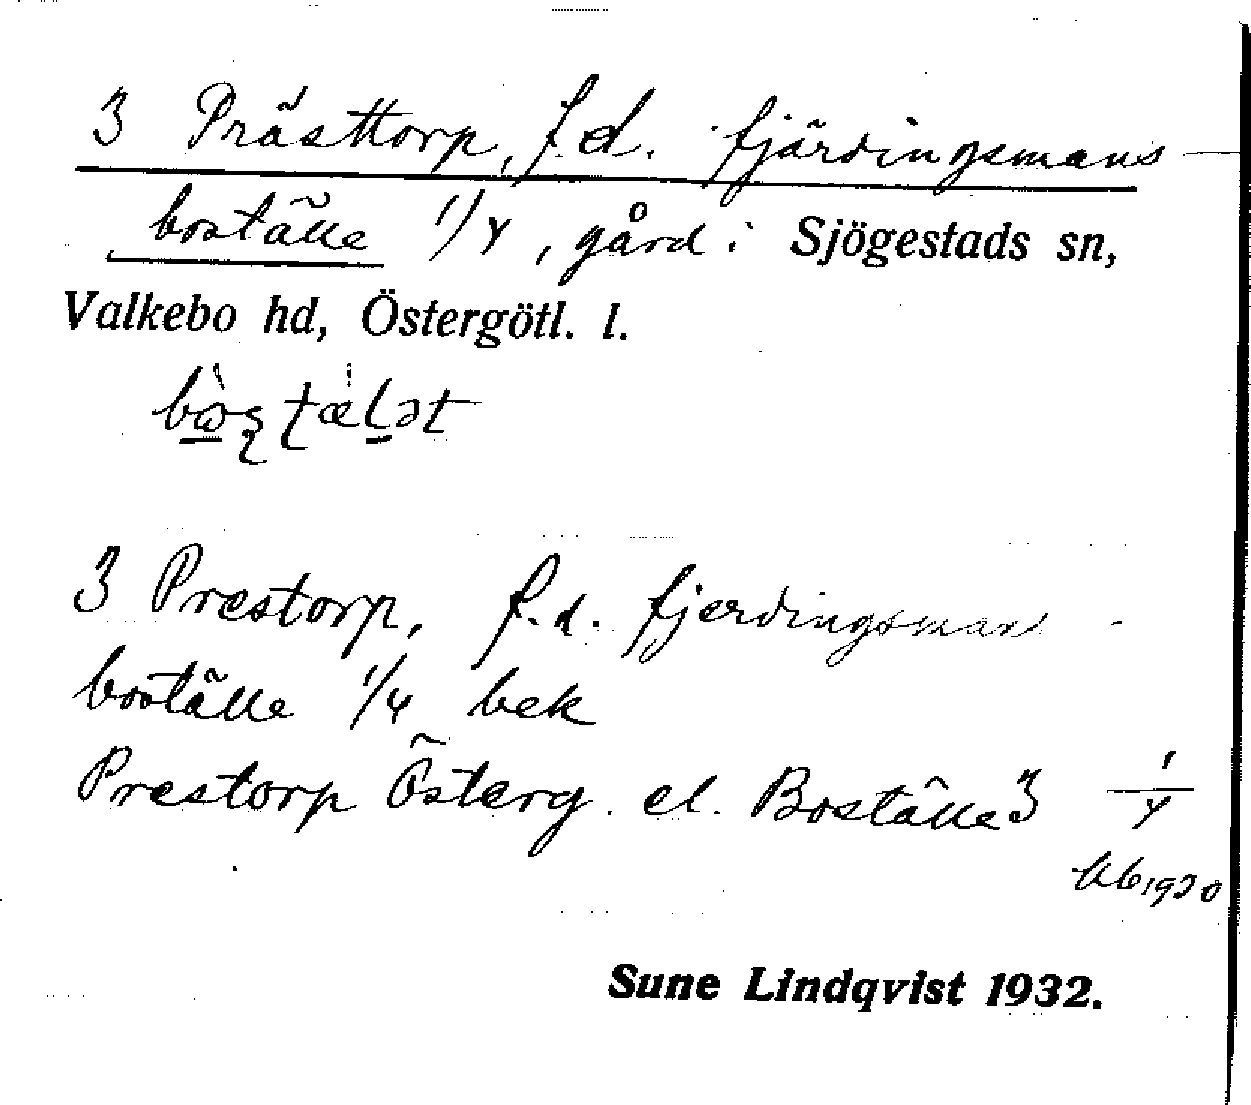 3 Prästtorp, f.d. fjärdingsmans-
boställe 1/4, gård i Sjögestads sn,
Valkebo hd, Östergötl. l.
3 Prestorp, f.d. fjerdingsman-
boställe 1/4 bek
Prestorp Österg. el. Boställe 3 1/4
1930
Sune Lindqvist 1932.